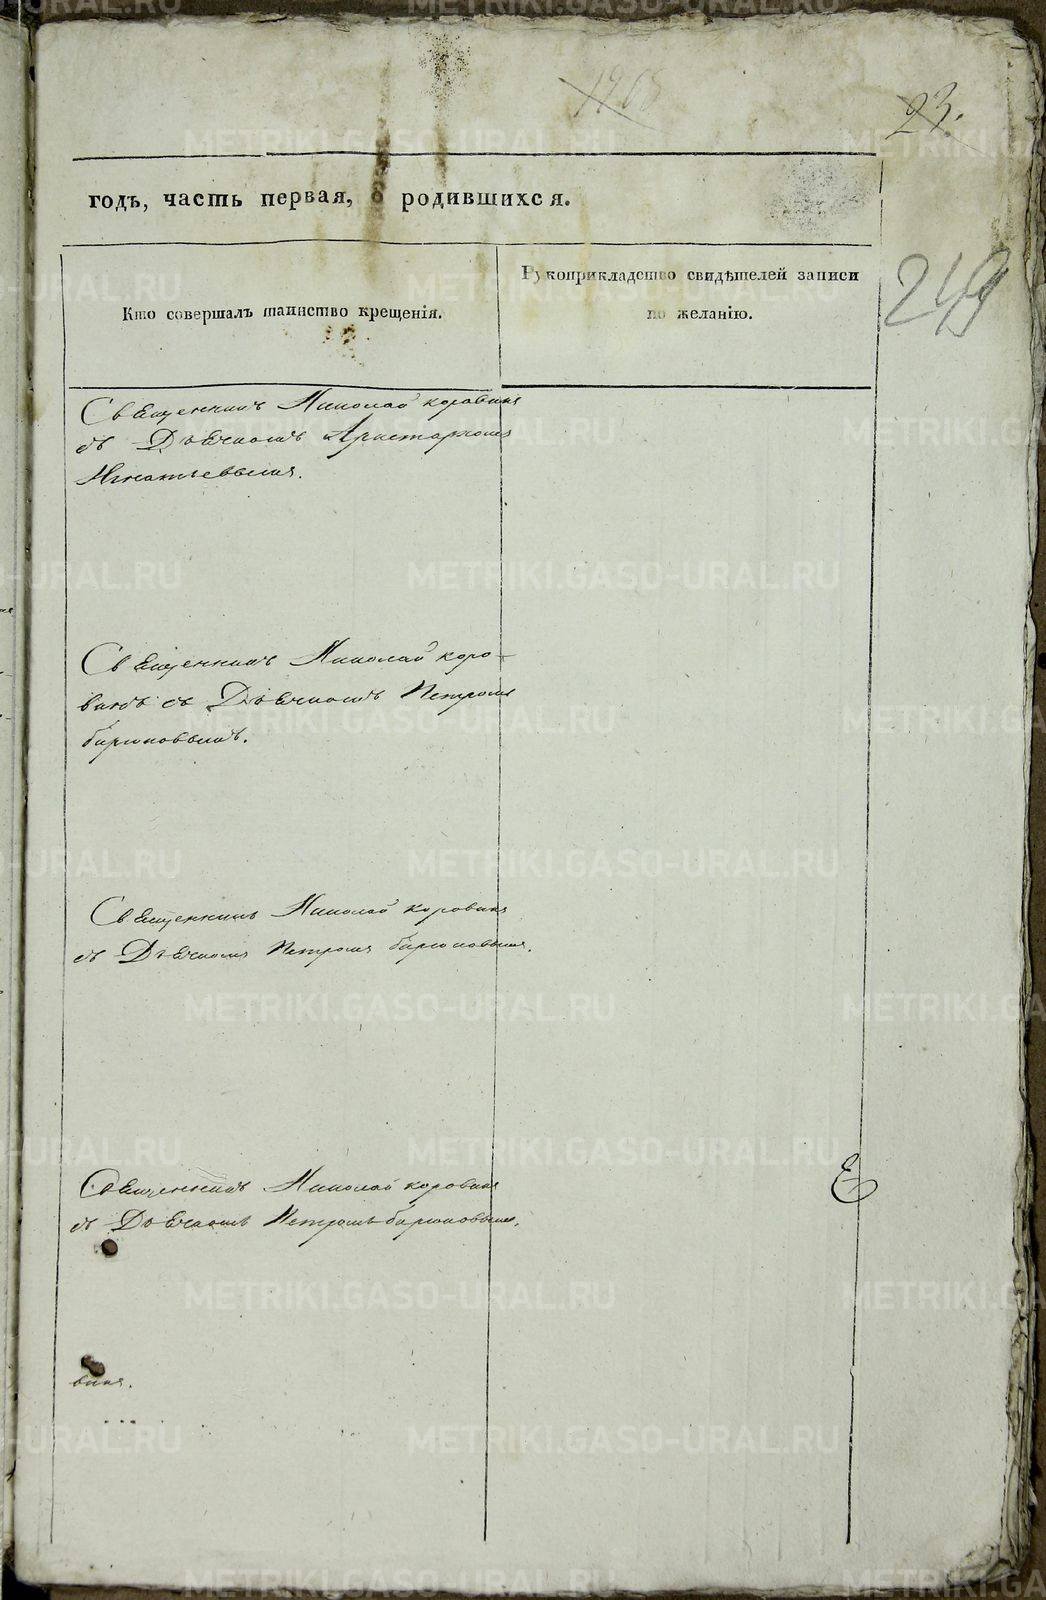 1268
23.
годъ, часть первая, о родившихся.
249
Кто совершалъ таинство крещенія.
Рукоприкладство свидѣтелей записи
по желанію.
Священникъ Николай Коровинъ
съ Дьячкомъ Аристархомъ
Игнатьевымъ.
Священникъ Николай Коро-
винъ съ Дьячкомъ Петромъ
Бирюковымъ.
Священникъ Николай Коровинъ
съ Дьячкомъ Петромъ Бирюковымъ.
Священникъ Николай Коровинъ
съ Дьячкомъ Петромъ Бирюковымъ.
METRIKI.GASO-URAL.RU